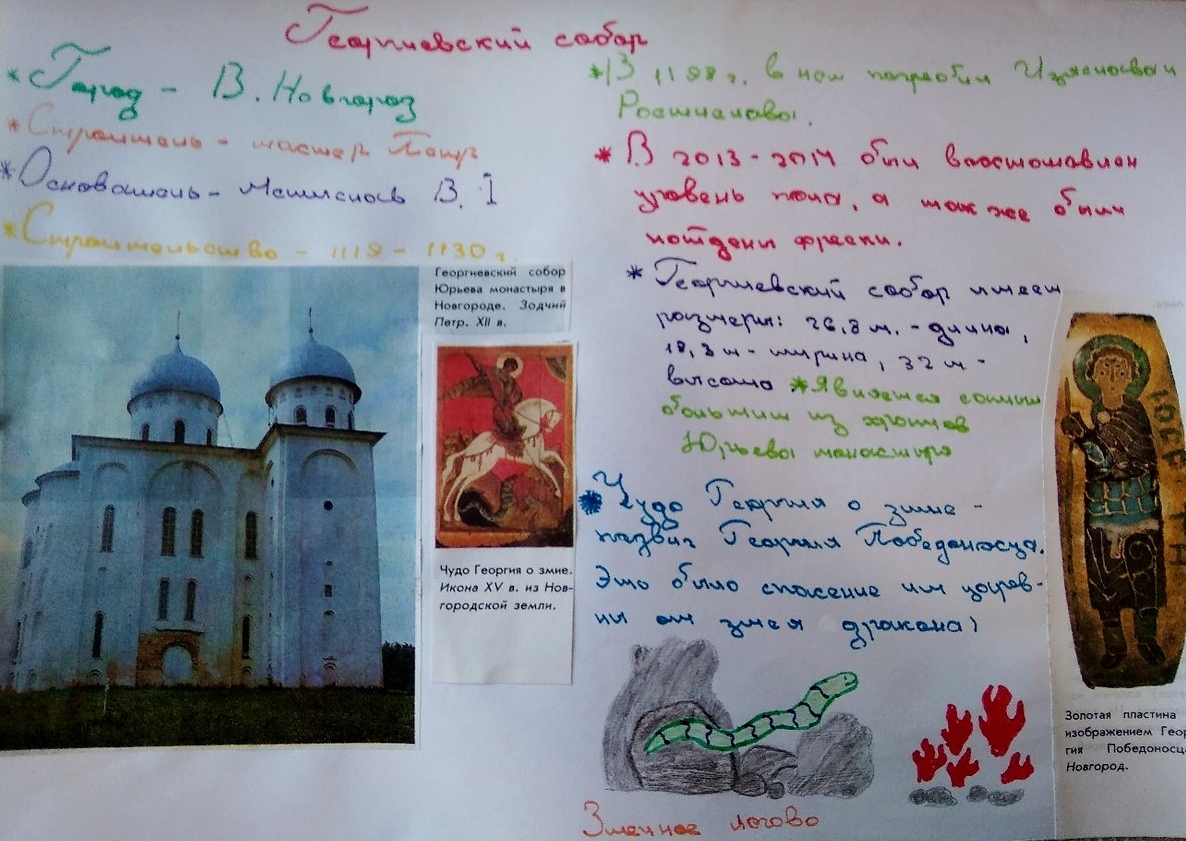 Георгиевский собор
* Город – В. Новгород
* Строитель – мастер Пётр
* Основатель – Мстислав В. I
* Строительство – 1119 – 1130 г.
Георгиевский собор
Юрьева монастыря в
Новгороде. Зодчий
Петр. XII в.
Чудо Георгия о змие.
Икона XV в. из Нов-
городской земли.
* В 1198 г. в нем погребён Изяслав
* В 2013-2014 был восстановлен
уровень пола, а также были
найдены фрески.
* Георгиевский собор имеет
размеры: 26,8 м. – длина,
18,3 м – ширина, 32 м –
высота * Является самым
большим из храмов
Юрьева монастыря
* Чудо Георгия о змие –
подвиг Георгия Победоносца.
Это было спасение им царев-
ны от змея дракона)
Змеиное логово
Золотая пластина
изображением Геор
гия Победоносца
Новгород.